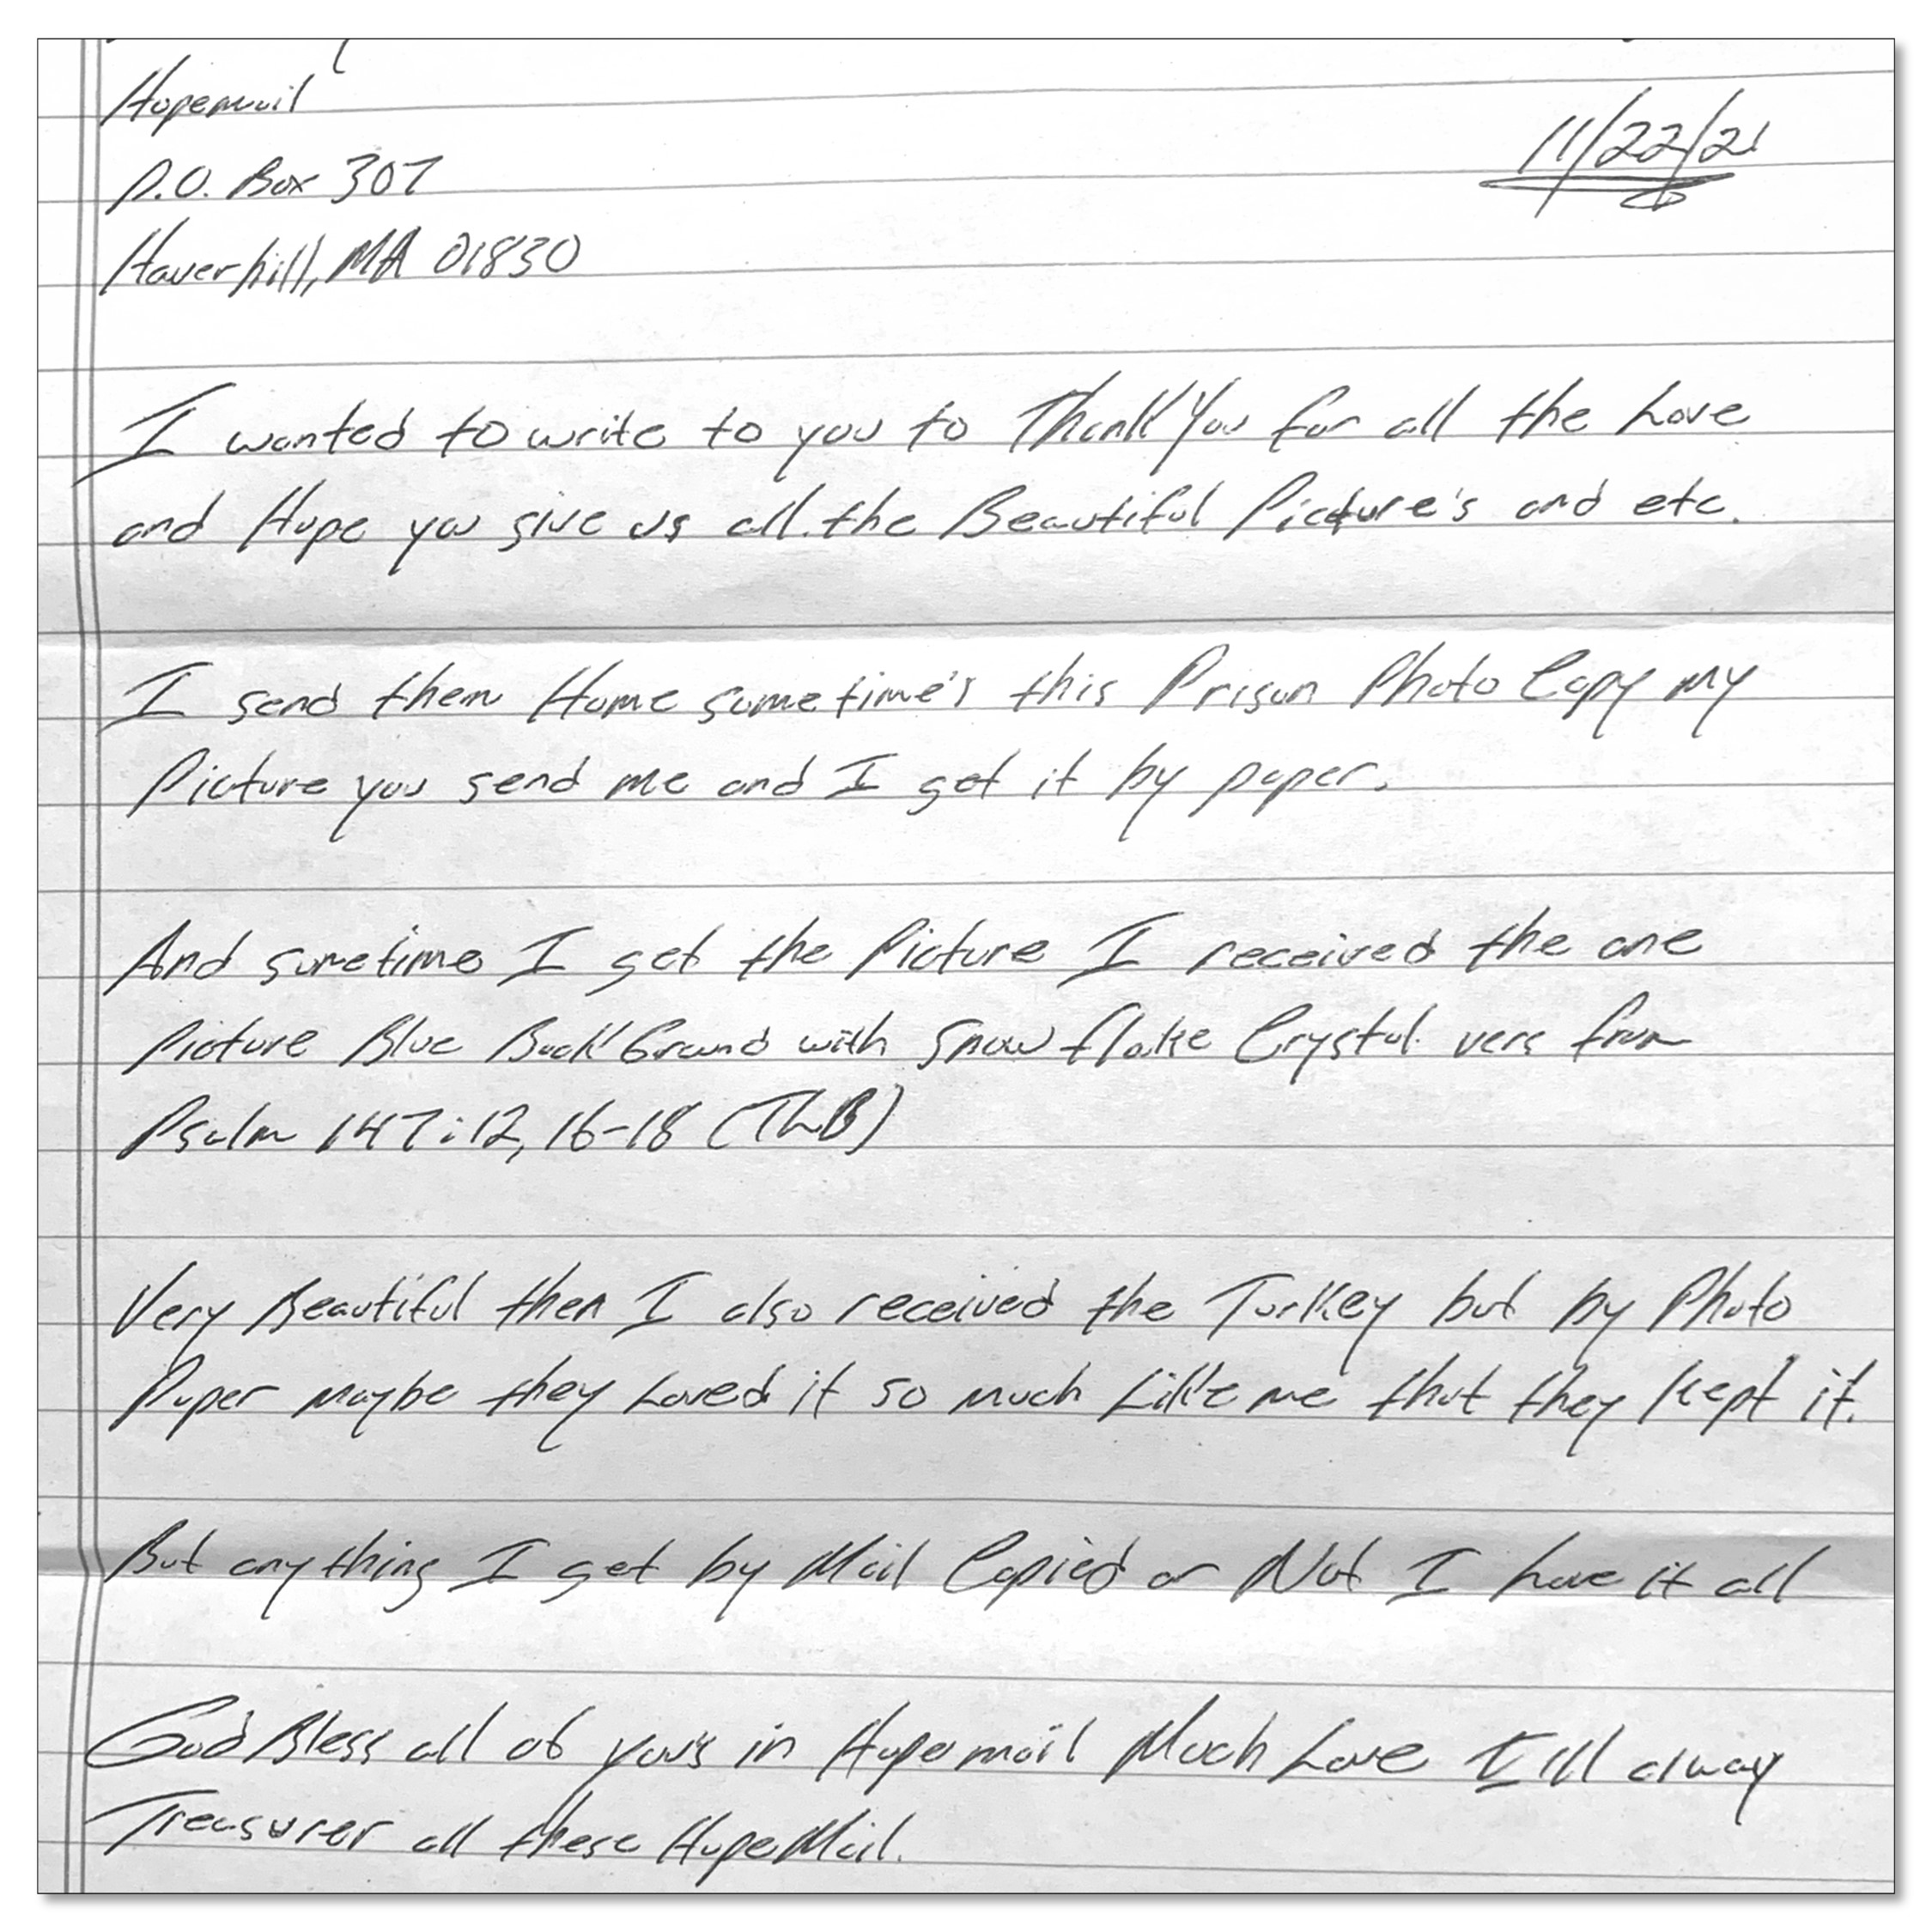 Hopemail
11/22/21
P.O. Box 307
Haverhill, MA 01830
I wanted to write to you to Thank You for all the Love
and Hope you give us all the Beautiful Picture's and etc.
I send them Home sometime's this Prison Photo Copy my
Picture you send me and I get it by paper.
And sometime I get the Picture I received the one
Picture Blue Back Ground with snow flake Crystal vers from
Psalm 147:12, 16-18 (TLB)
Very Beautiful then I also received the Turkey but by Photo
Paper maybe they Loved it so much Like me that they Kept it.
But anything I get by Mail Copied or Not I have it all
God Bless all of yous in Hopemail Much Love I'll alway
Treasurer all these HopeMail.